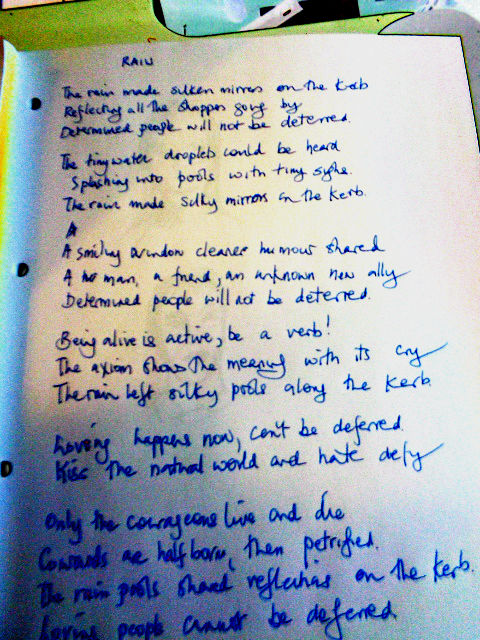 RAIN
The rain made silken mirrors on the kerb
Reflecting all the shoppers going by
Determined people will not be deterred.
The tiny water droplets could be heard
Splashing into pools with tiny sighs.
The rain made silky mirrors on the kerb.
A
A smiling window cleaner humour shared
A man, a friend, an unknown new ally
Determined people will not be deterred.
Being alive is active, be a verb!
The axiom shows the meaning with its cry
The rain left silky pools along the kerb.
Loving happens now, can't be deferred.
Kiss the natural world and hate defy
Only the courageous live and die
Cowards are half born, then petrified.
The rain pools shared reflections on the kerb.
Loving people cannot be deferred